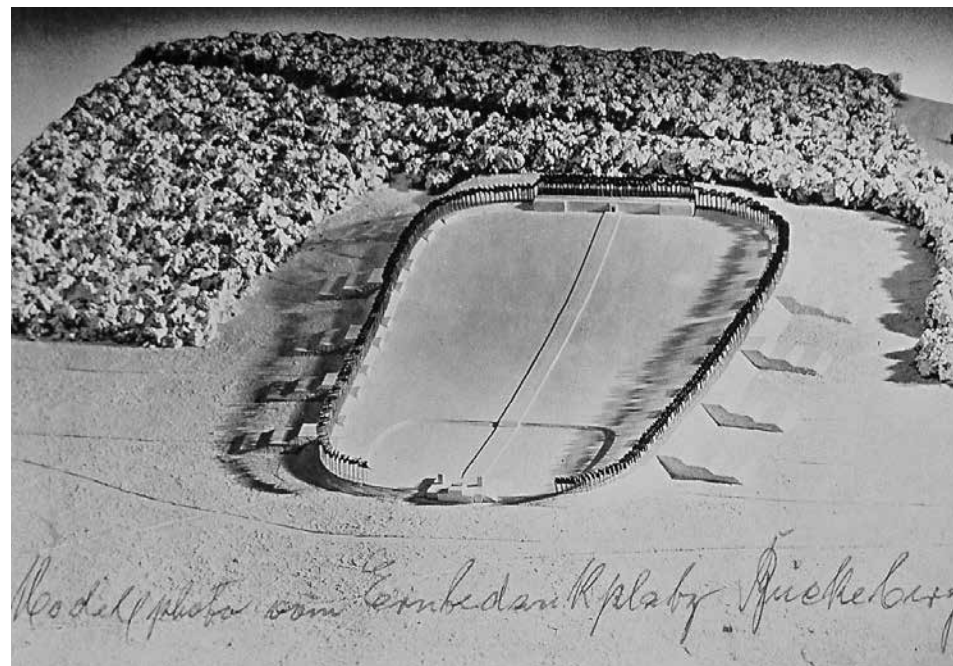 Modellphoto vom Erntedankplatz Bückeberg